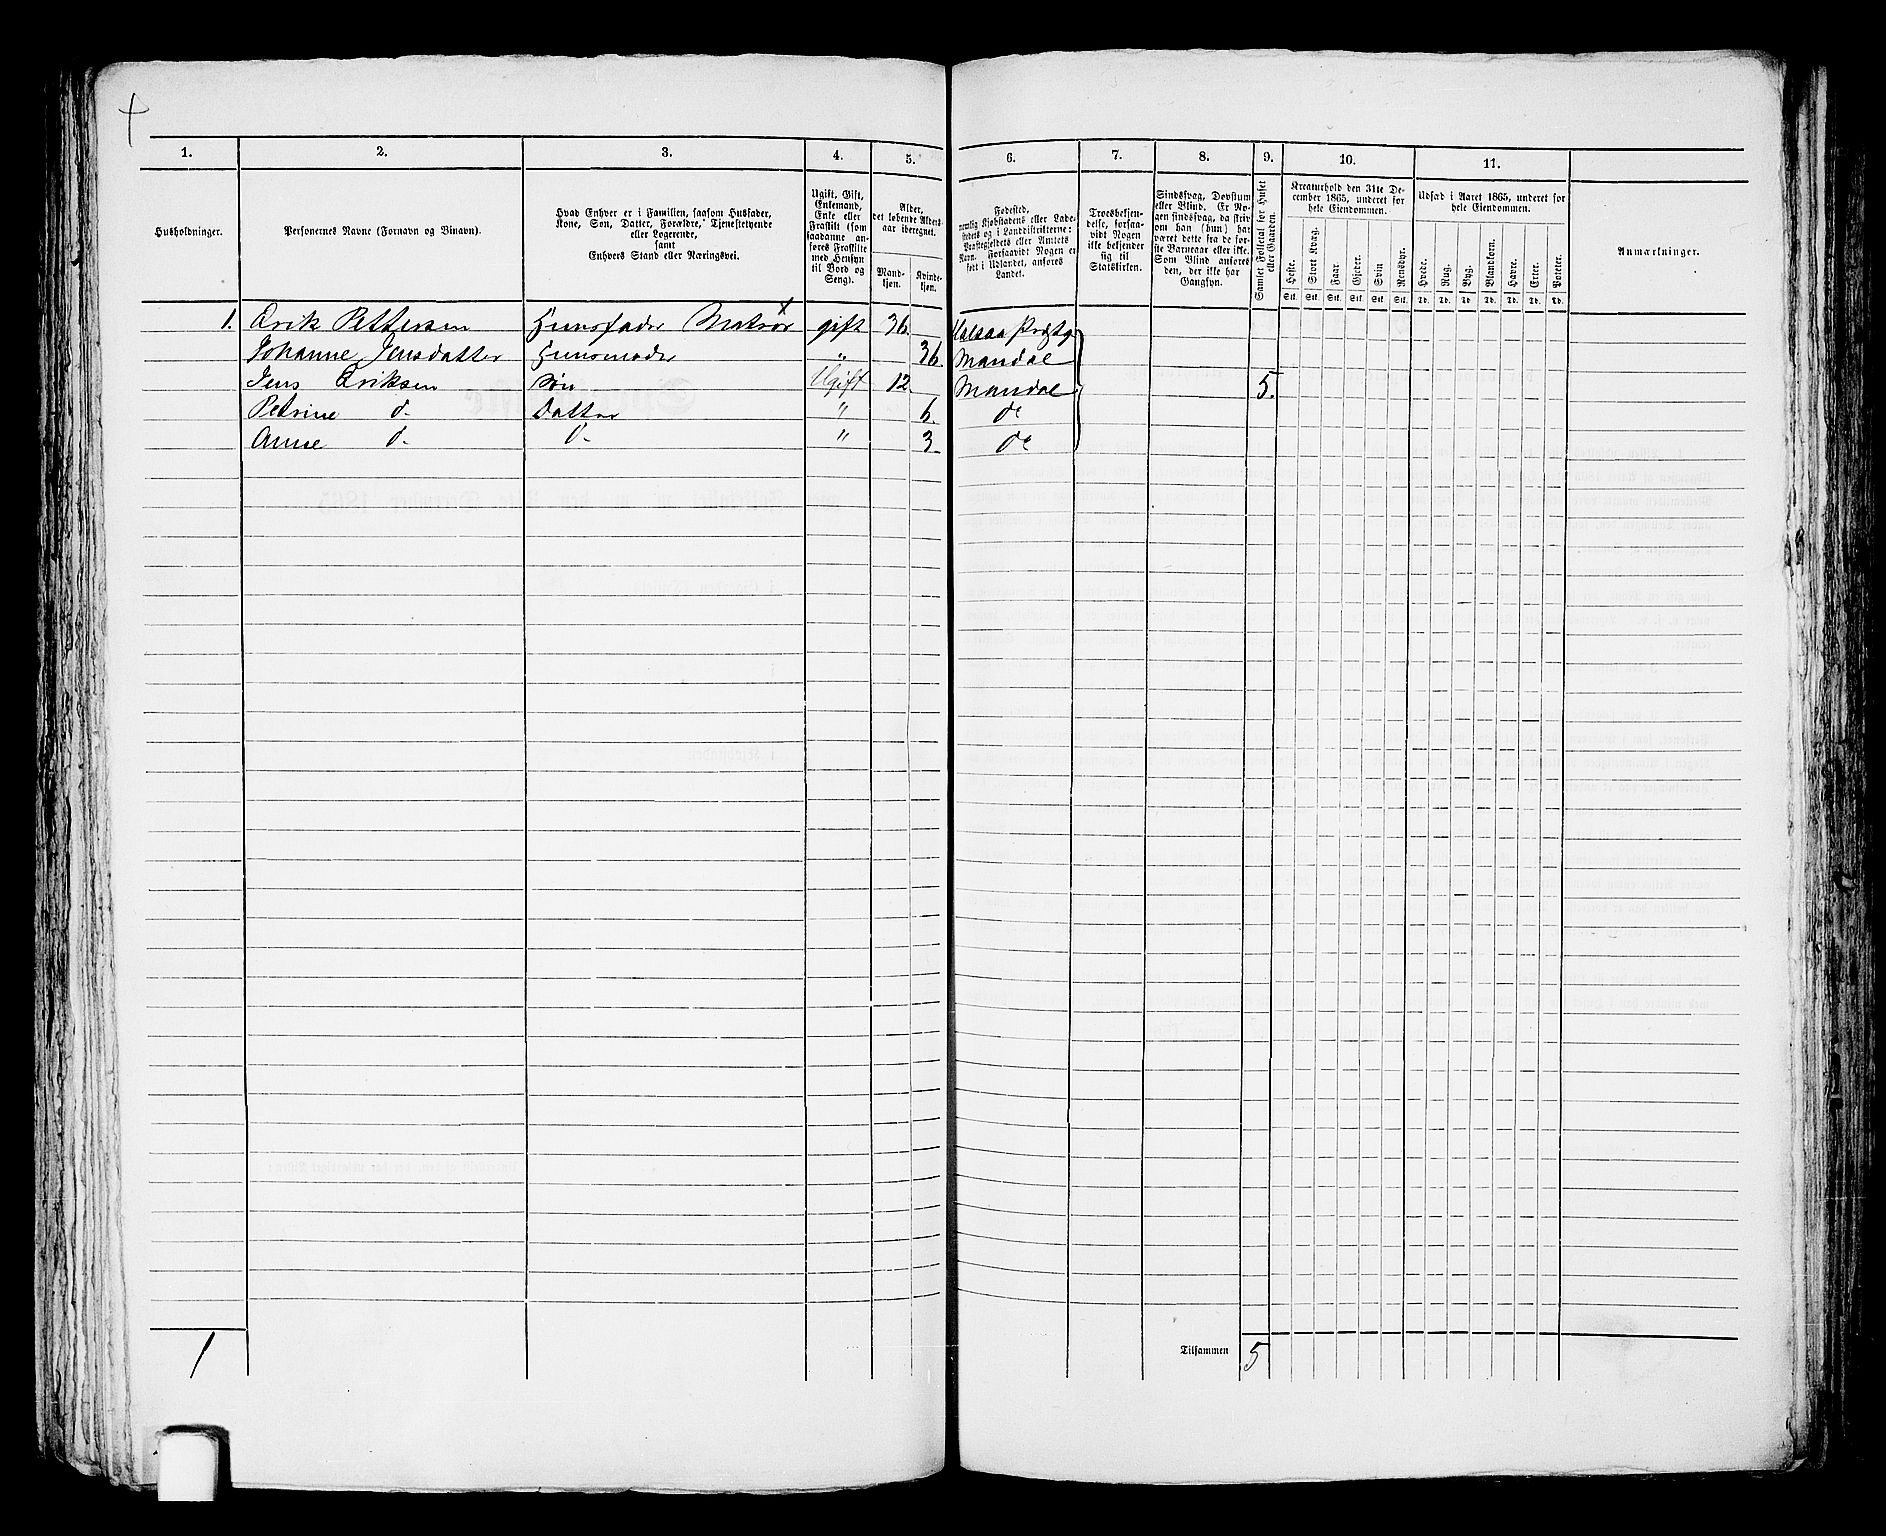 1. 2. 3. 4. 5. 6. 7. 8. 9. 10. 11.
Husholdninger.
Personernes Navne (Fornavn og Binavn).
Hvad Enhver er i Familien, saasom Husfader,
Kone, Søn, Datter, Forældre, Tjenestetyende
eller Logerende,
samt
Enhvers Stand eller Næringsvei.
Ugift, Gift,
Enkemand,
Enke eller
Fraskilt (som
saadanne an-
føres Fraskilte
med Hensyn
til Bord og
Seng).
Alder,
det løbende Alders-
aar iberegnet.
Mand-
kjøn.
Kvinde-
kjøn.
Fødested,
nemlig Kjøbstadens eller Lade-
stedets og i Landdistrikterne:
Præstegjeldets eller Amtets
Navn. Forsaavidt Nogen er
født i Udlandet, anføres
Landet.
Troesbekjen-
delse, forsaa-
vidt Nogen
ikke bekjender
sig til
Statskirken.
Sindssvag, Døvstum
eller Blind. Er No-
gen sindssvag, da skriv
om han (hun) har
været dette fra de før-
ste Barneaar eller ikke.
Som Blind anføres
den, der ikke har
Gangsyn.
Samlet Folketal for Huset
eller Gaarden.
Kreaturhold den 31te De-
cember 1865, underet for
hele Eiendommen.
Heste. Stort Kvæg. Faar. Gjeder. Svin. Rensdyr.
Stk. Stk. Stk. Stk. Stk. Stk.
Udsæd i Aaret 1865, underet for
hele Eiendommen.
Hvede. Rug. Byg. Blandkorn. Havre. Erter. Poteter.
Td. Td. Td. Td. Td. Td. Td.
Anmærkninger.
1. Erik Pettersen Huusfader Matros gift 36 Halsaa Præstg
Johanne Jensdatter Huusmoder " 36 Mandal
Jens Eriksen Søn Ugift 12 Mandal 5.
Petrine d. Datter " 6 do
Anne d. d. " 3 do
1 Tilsammen 5